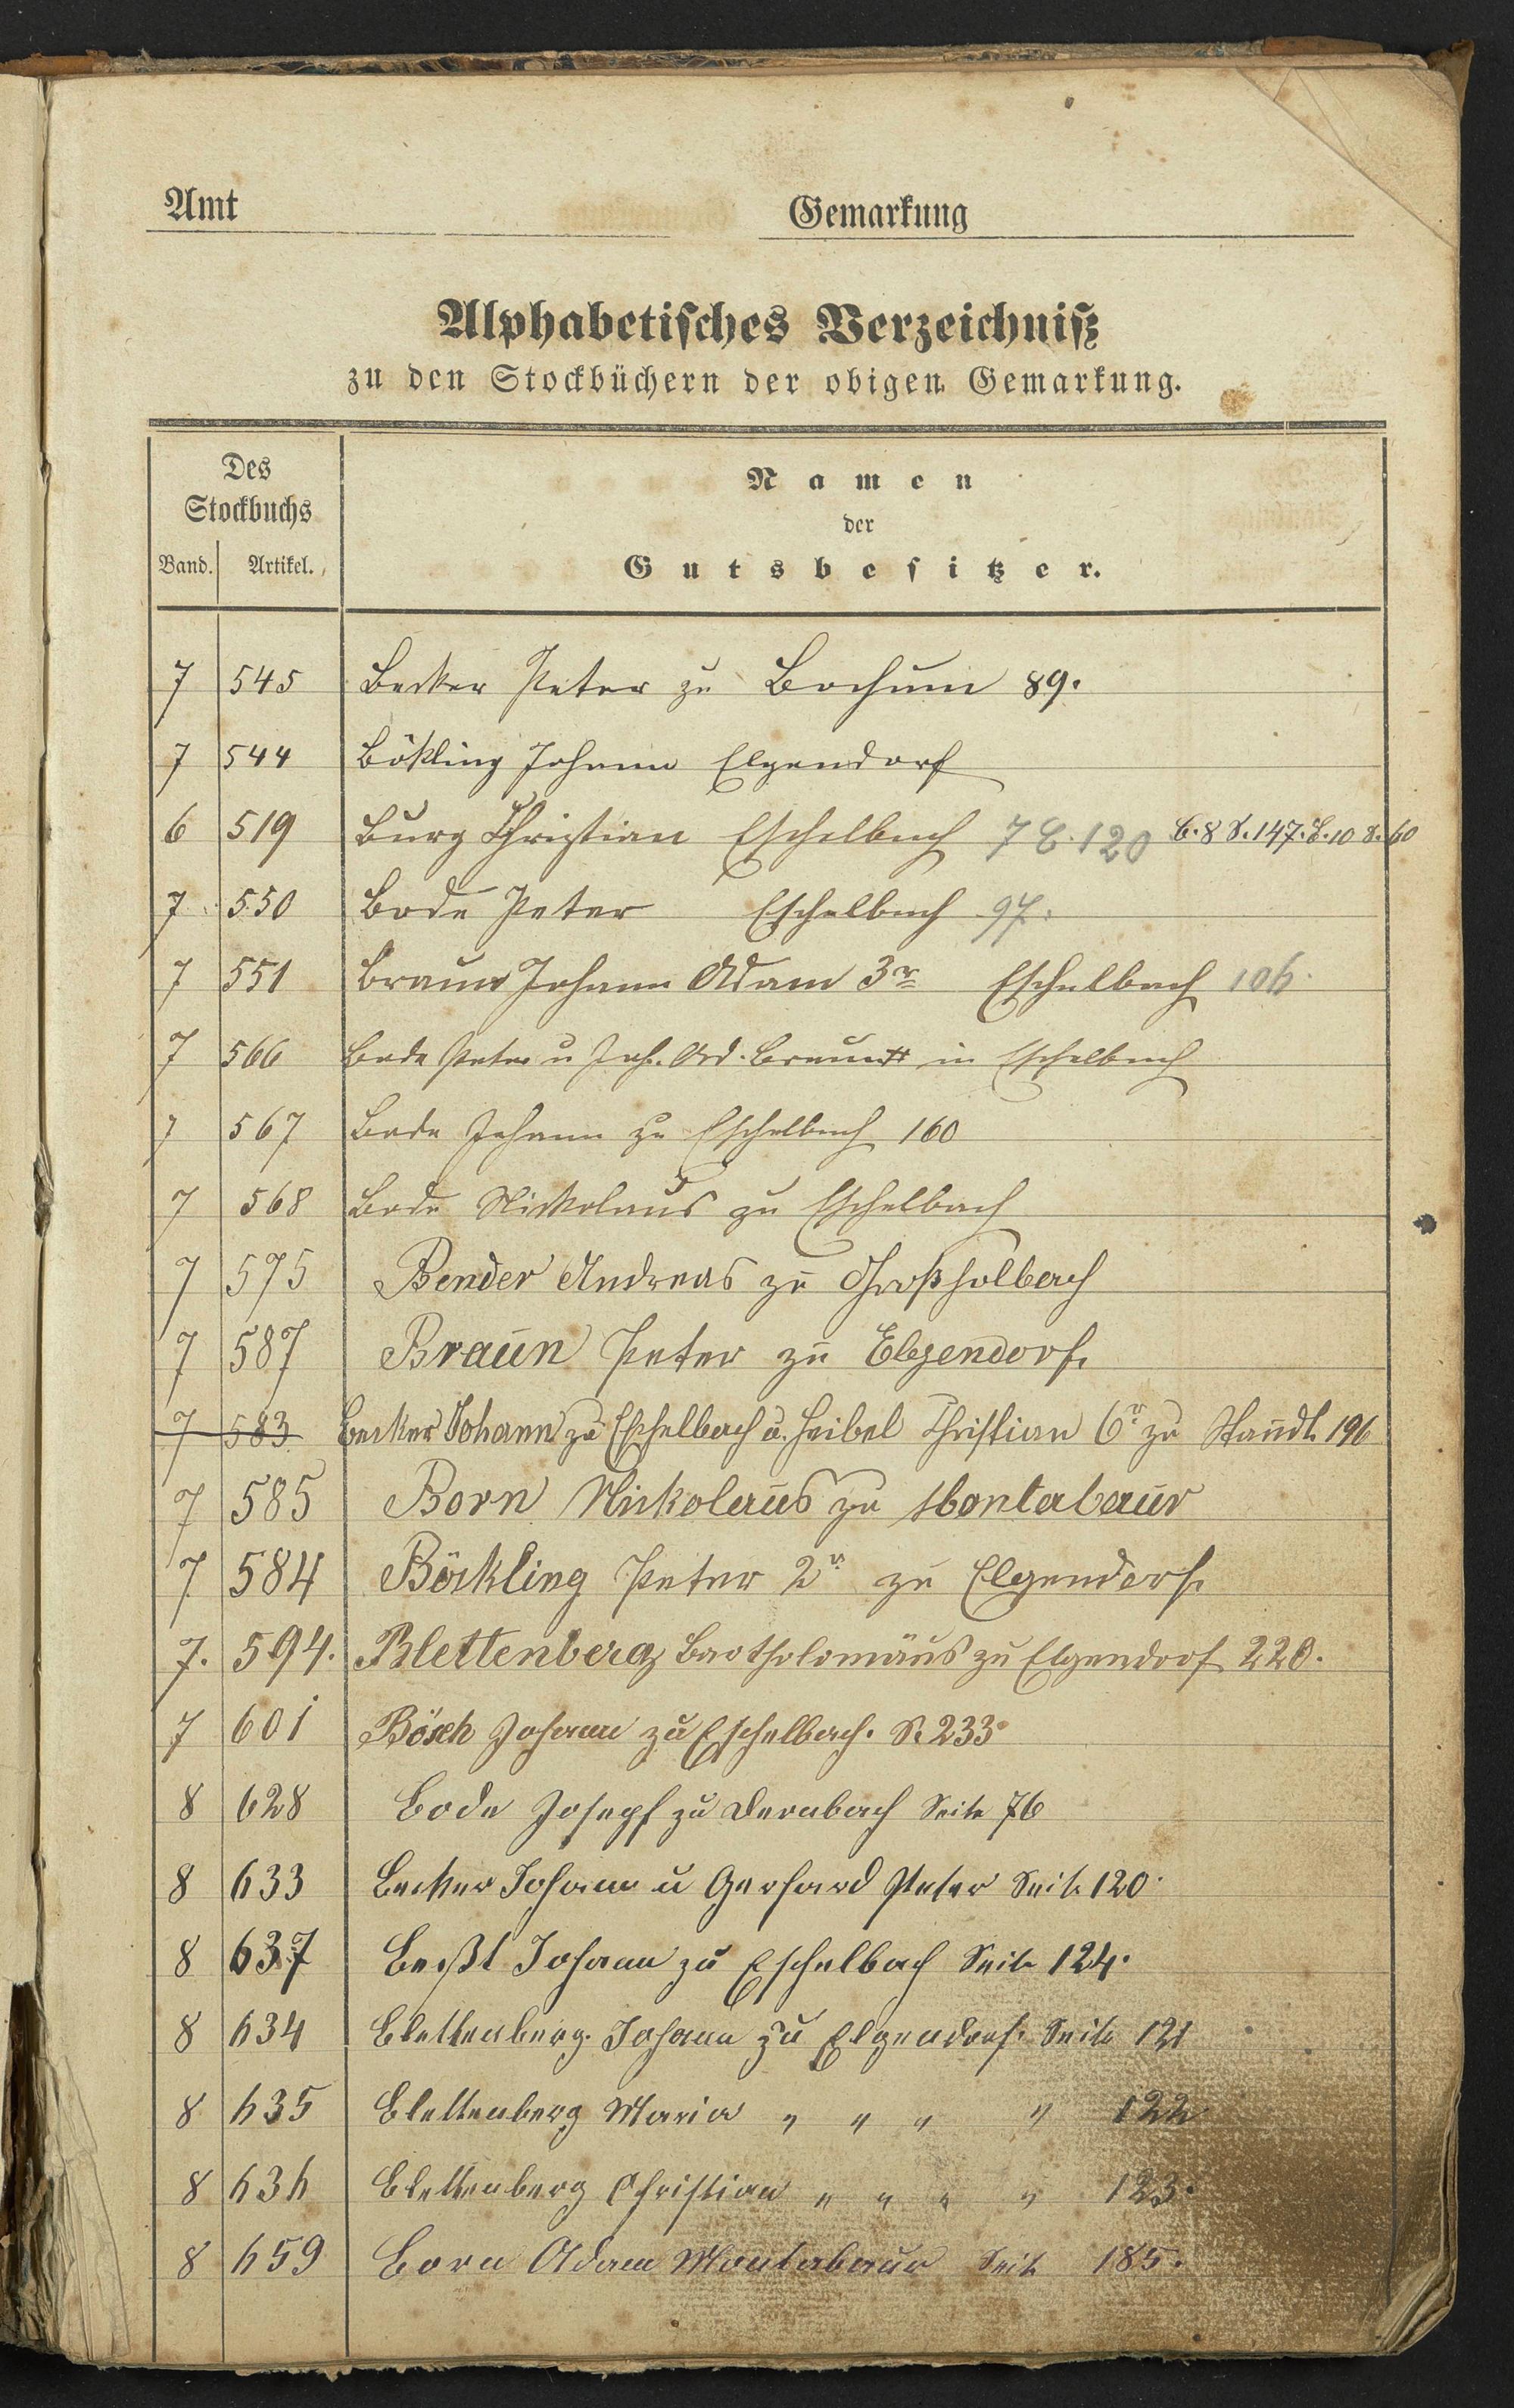 Amt Gemarkung
Alphabetisches Verzeichniß
zu den Stockbüchern der obigen Gemarkung.
Des
Stockbuchs
Band. Artikel.
Namen
der
Gutsbesitzer.
7 545 Becker Peter zu Bochum 89.
7 544 Bökling Johann Elgendorf
6 519 Burg Christian Eschelbach 7 S. 120 B. 8 S. 147. B. 10 S. 60
7 550 Bode Peter Eschelbach 97.
7 551 Braun Johann Adam 3r Eschelbach 106.
7 566 Bode Peter u Joh. Ad. Braun in Eschelbach
7 567 Bode Johann zu Eschelbach 160
7 568 Bode Nickolaus zu Eschelbach
7 575 Bender Andreas zu Großholbach
7 587 Braun Peter zu Elgendorf.
7 583 Becker Johann zu Eschelbach u. Heibel Christian 6r zu Staudt. 196
7 585 Born Nickolaus zu Montabaur
7 584 Böckling Peter 2r zu Elgendorf.
7. 594. Blettenberg Bartholomäus zu Elgendorf 220.
7 601 Bösch Johann zu Eschelbach. S. 233.
8 628 Bode Joseph zu Dernbach Seite 76
8 633 Becker Johann u Gerhard Peter Seite 120.
8 637 Johann zu Eschelbach Seite 124.
8 634 Blettenberg Johann zu Elgendorf. Seite 121
8 635 Blettenberg Maria " " " " 122
8 636 Blettenberg Christian " " " " 123.
8 659 Born Adam Montabaur Seite 185.